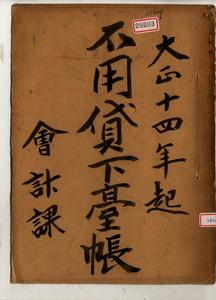 20203
大正十四年起
不用貸下臺帳
會計課